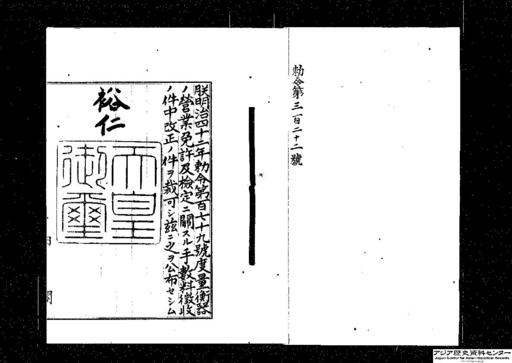 勅令第三百二十二號
朕明治四十二年勅令第百七十九號度量衡器
ノ營業免許及檢定ニ關スル手數料徴收
ノ件中改正ノ件ヲ裁可シ茲ニ之ヲ公布セシム
裕仁
天皇
御璽
アジア歴史資料センター
Japan Center for Asian Historical Records